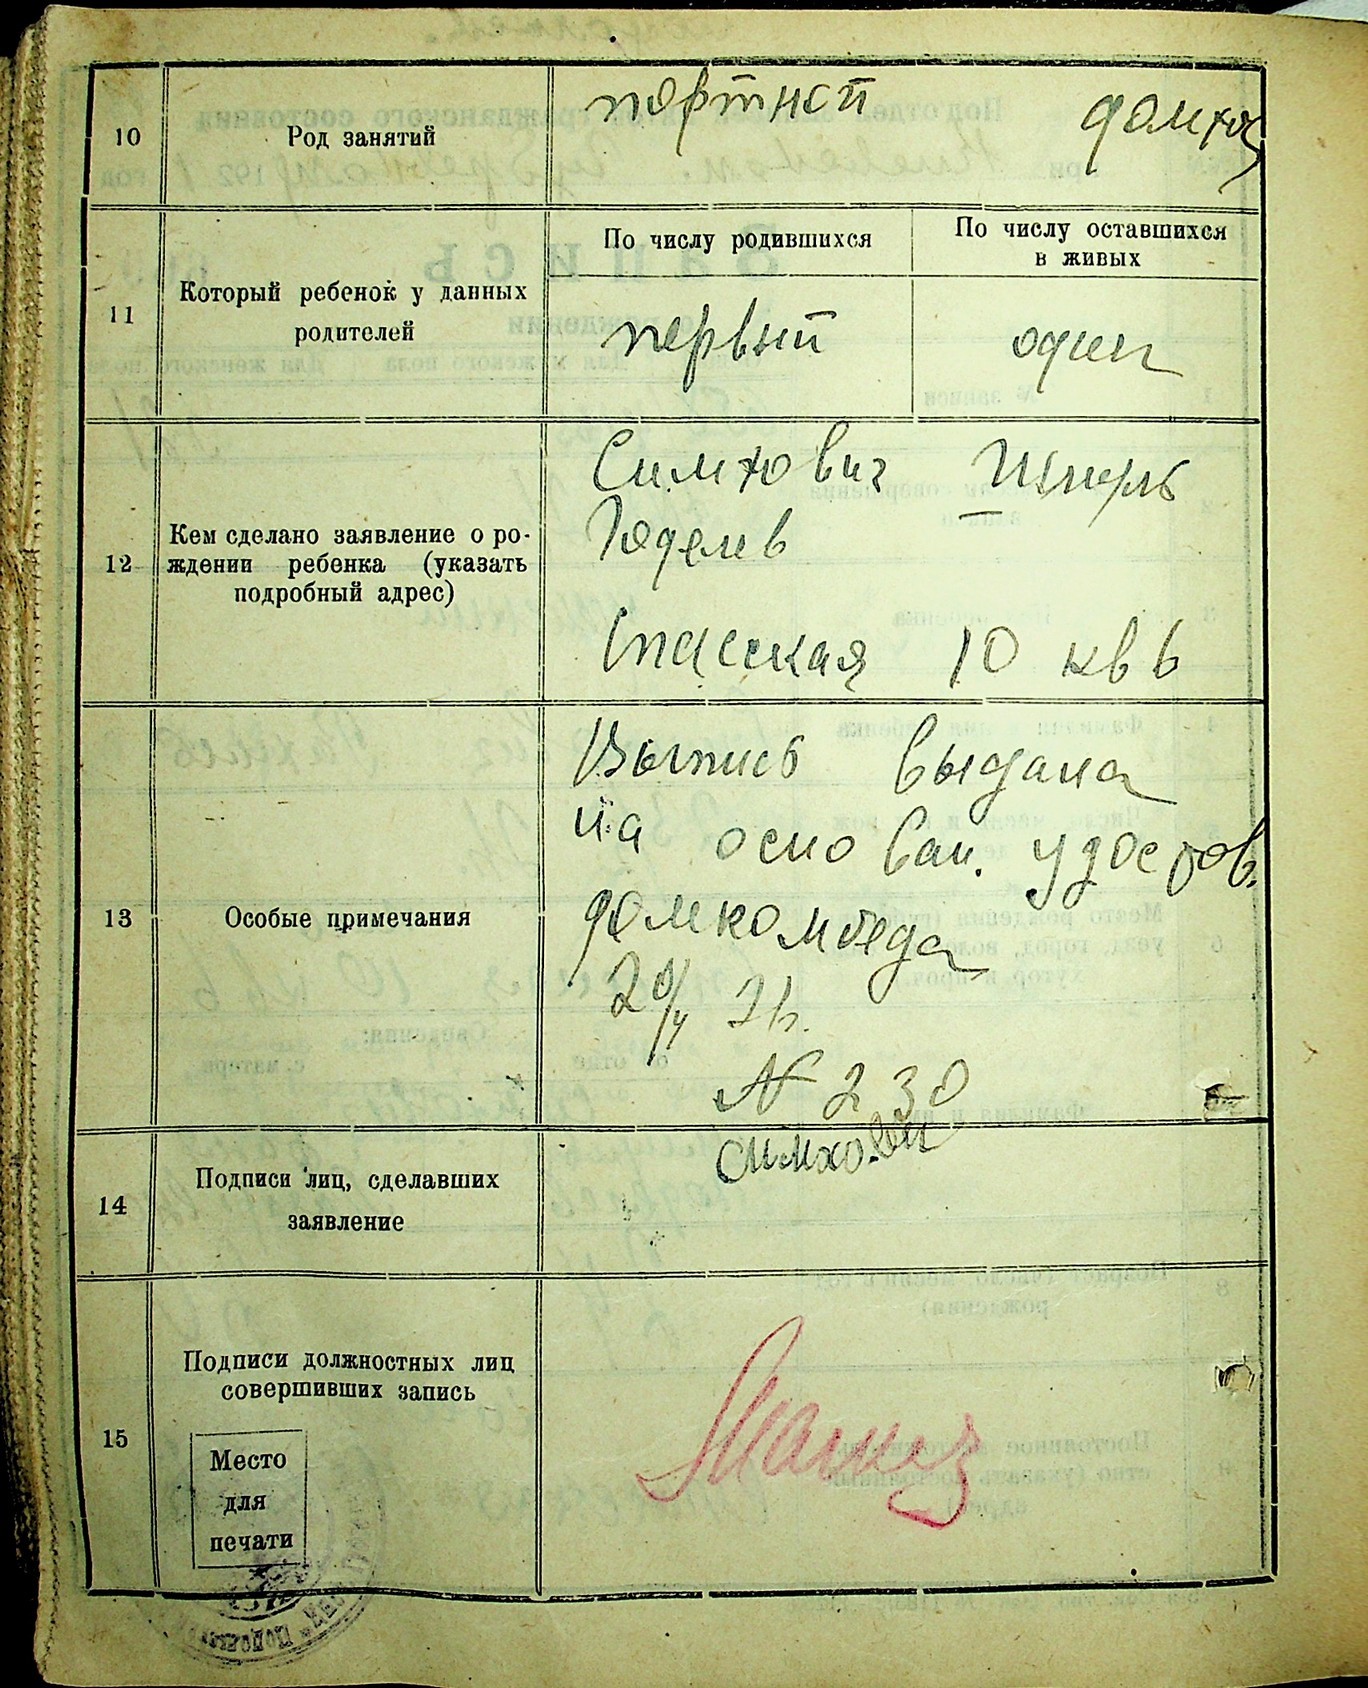 10
Род занятий
портной домхоз
По числу родившихся
По числу оставшихся
в живых
11
Который ребенок у данных
родителей
первый
один
12
Кем сделано заявление о ро-
ждении ребенка (указать
подробный адрес)
Симхович Шмуль
Годелев
Спасская 10 кв 6
13
Особые примечания
Выпись выдана
на основан. удостов.
домкомбеда
20/4 21г.
№ 230
14
Подписи лиц, сделавших
заявление
Симхович
15
Подписи должностных лиц
совершивших запись
Место
для
печати